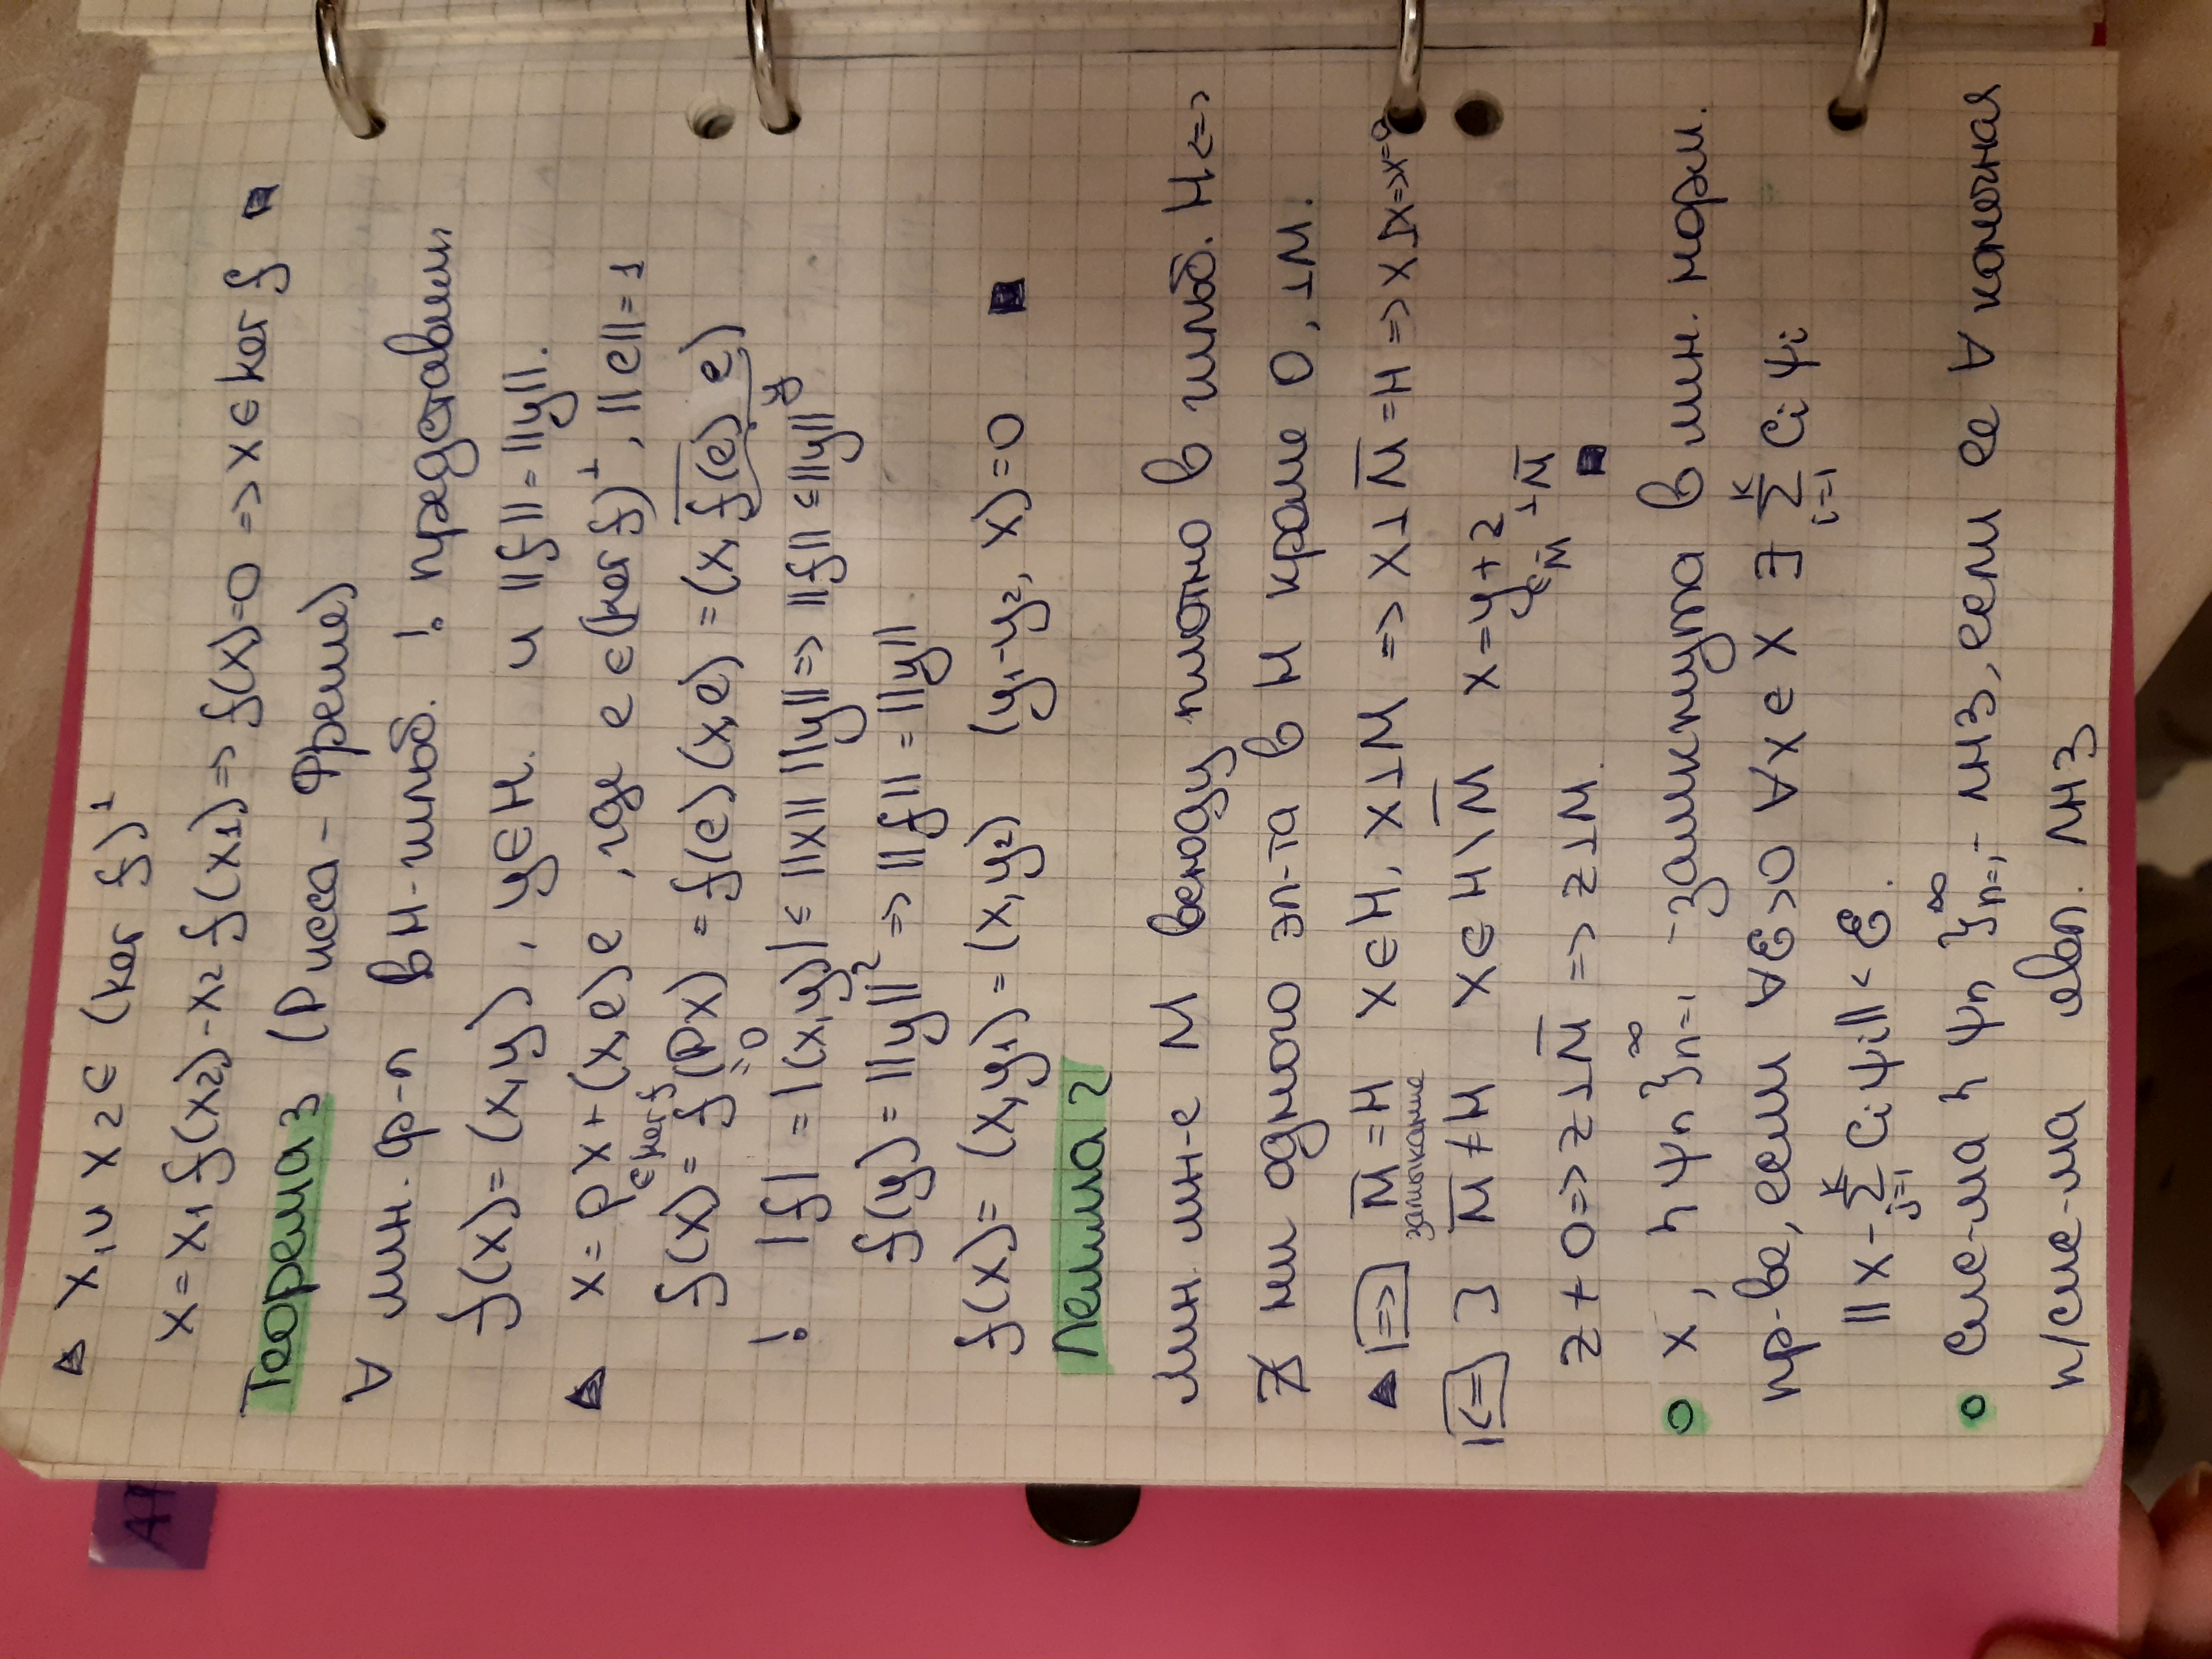 ▲ x₁ и x₂ ∈ (ker f)^⊥
x = x₁ f(x₂) - x₂ f(x₁) => f(x)=0 => x ∈ ker f ■
Теорема 3 (Рисса - Фреше)
∀ лин. ф-л в H-гильб. ! представим
f(x) = (x, y), y∈H. и ||f|| = ||y||.
▲ x = Px + (x,e)e, где e ∈ (ker f)^⊥, ||e|| = 1
∈ ker f
f(x) = f(Px) = f(e)(x,e) = (x, \overline{f(e)} e)
=0 y
! |f| = |(x,y)| ≤ ||x|| ||y|| => ||f|| ≤ ||y||
f(y) = ||y||² => ||f|| = ||y||
f(x) = (x,y₁) = (x,y₂) (y₁-y₂, x) = 0 ■
Лемма 2
Лин. мн-е M всюду плотно в гильб. H <=>
∄ ни одного эл-та в H кроме 0, ⊥M.
▲ |=>| \overline{M} = H x∈H, x⊥M => x⊥\overline{M} = H => x⊥x => x=0
замыкание
|<=| ∃ \overline{M} ≠ H x∈H\\overline{M} x = y + z
∈\overline{M} ⊥\overline{M}
z ≠ 0 => z⊥\overline{M} => z⊥M. ■
○ X, {ψn}_{n=1}^∞ - замкнута в лин. норм.
пр-ве, если ∀ε>0 ∀x∈X ∃ \sum_{i=1}^{k} Ci ψi
||x - \sum_{i=1}^{k} Ci ψi|| < ε.
○ Сис-ма {ψn}_{n=1}^∞ - ЛНЗ, если ее ∀ конечная
п/сис-ма явл. ЛНЗ
АН